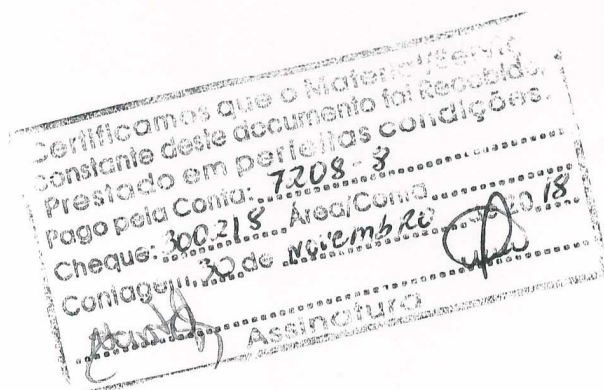 Certificamos que o Material/Serviç
constante deste documento foi Recebido,
Prestado em perfeitas condições.
Pago pela Conta: 7208-8
Cheque: 300.218 Área/Conta
Contagem, 30 de Novembro de 20 18
Assinatura